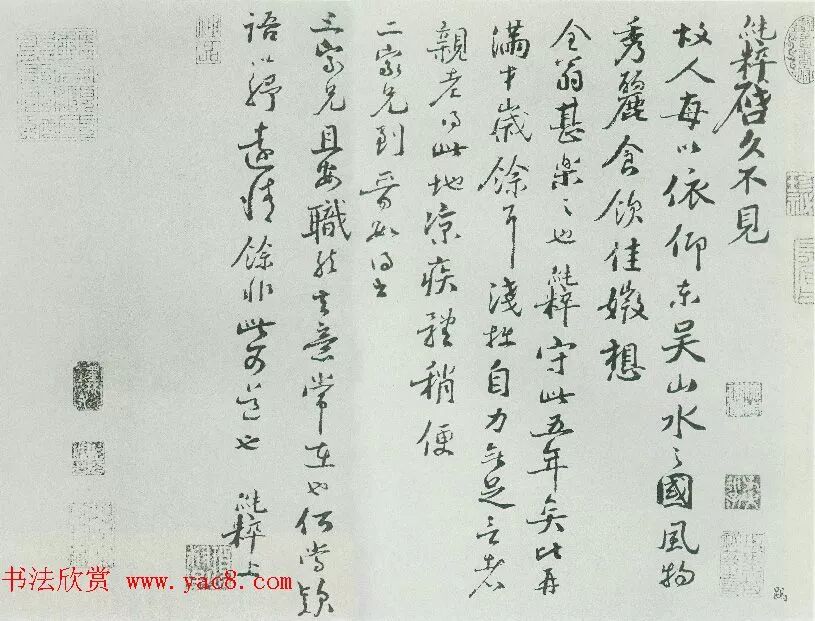 純粹啓久不見
故人每以依仰東吳山水之國風物
秀麗食飲佳媺想
全翁甚樂之也純粹守此五年矣比再
滿才歲餘耳淺拙自力無足言者
親老得此地涼疾體稍便
二家兄到晉如得書
三家兄且安職然其意常在也何當款
語以紓遠情餘非此可道也 純粹上
书法欣赏 www.yac8.com